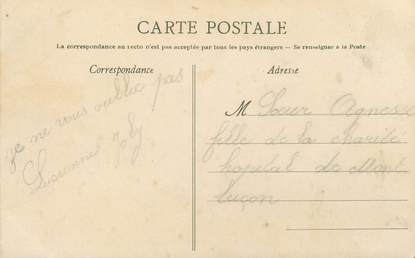 CARTE POSTALE
La correspondance au recto n'est pas acceptée par tous les pays étrangers — Se renseigner à la Poste
Correspondance
Adresse
je ne vous oublie pas
Lucienne Joly
M Sœur Agnese
fille de la charite
hopital de Mont
luçon